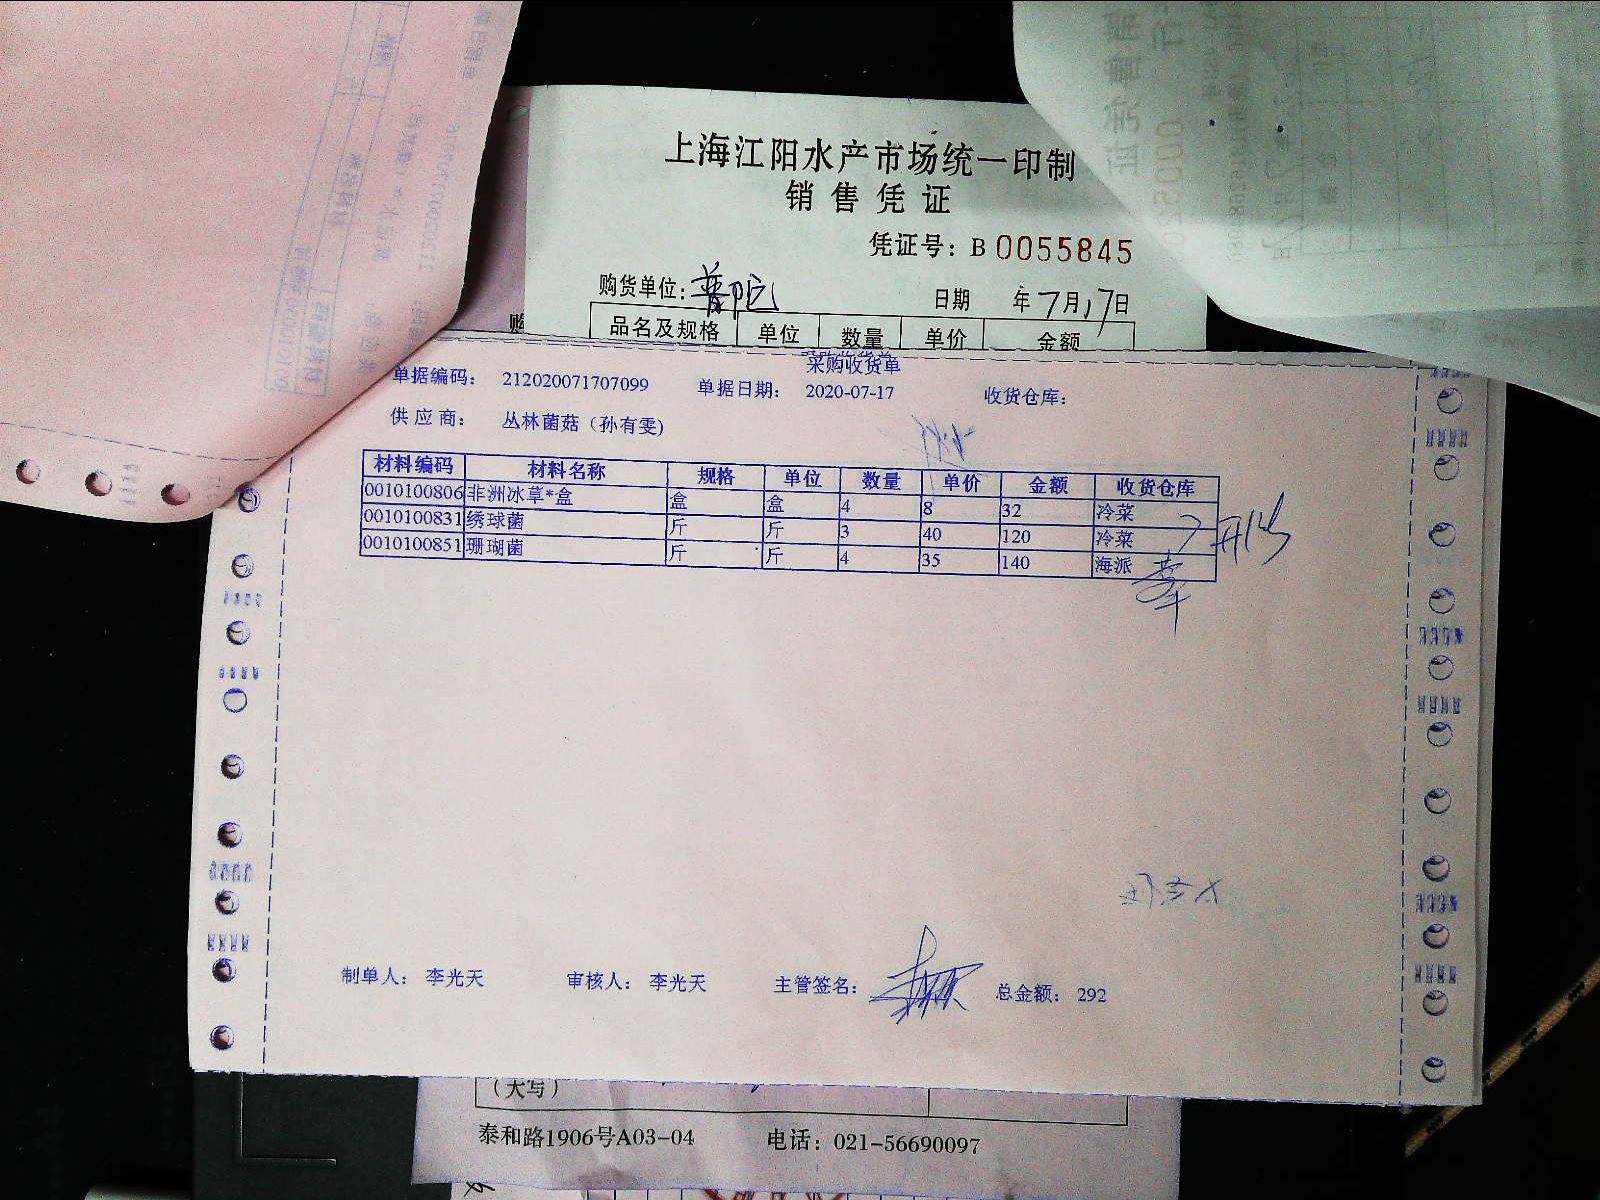 上海江阳水产市场统一印制
销售凭证
凭证号：B 0055845
购货单位：普陀 日期 年7月17日
品名及规格 单位 数量 单价 金额
采购收货单
单据编码： 212020071707099 单据日期： 2020-07-17 收货仓库：
供应商： 丛林菌菇（孙有雯)
材料编码 材料名称 规格 单位 数量 单价 金额 收货仓库
0010100806 非洲冰草*盒 盒 盒 4 8 32 冷菜
0010100831 绣球菌 斤 斤 3 40 120 冷菜
0010100851 珊瑚菌 斤 斤 4 35 140 海派
制单人： 李光天 审核人： 李光天 主管签名： 总金额： 292
（大写）
泰和路1906号A03-04 电话：021-56690097